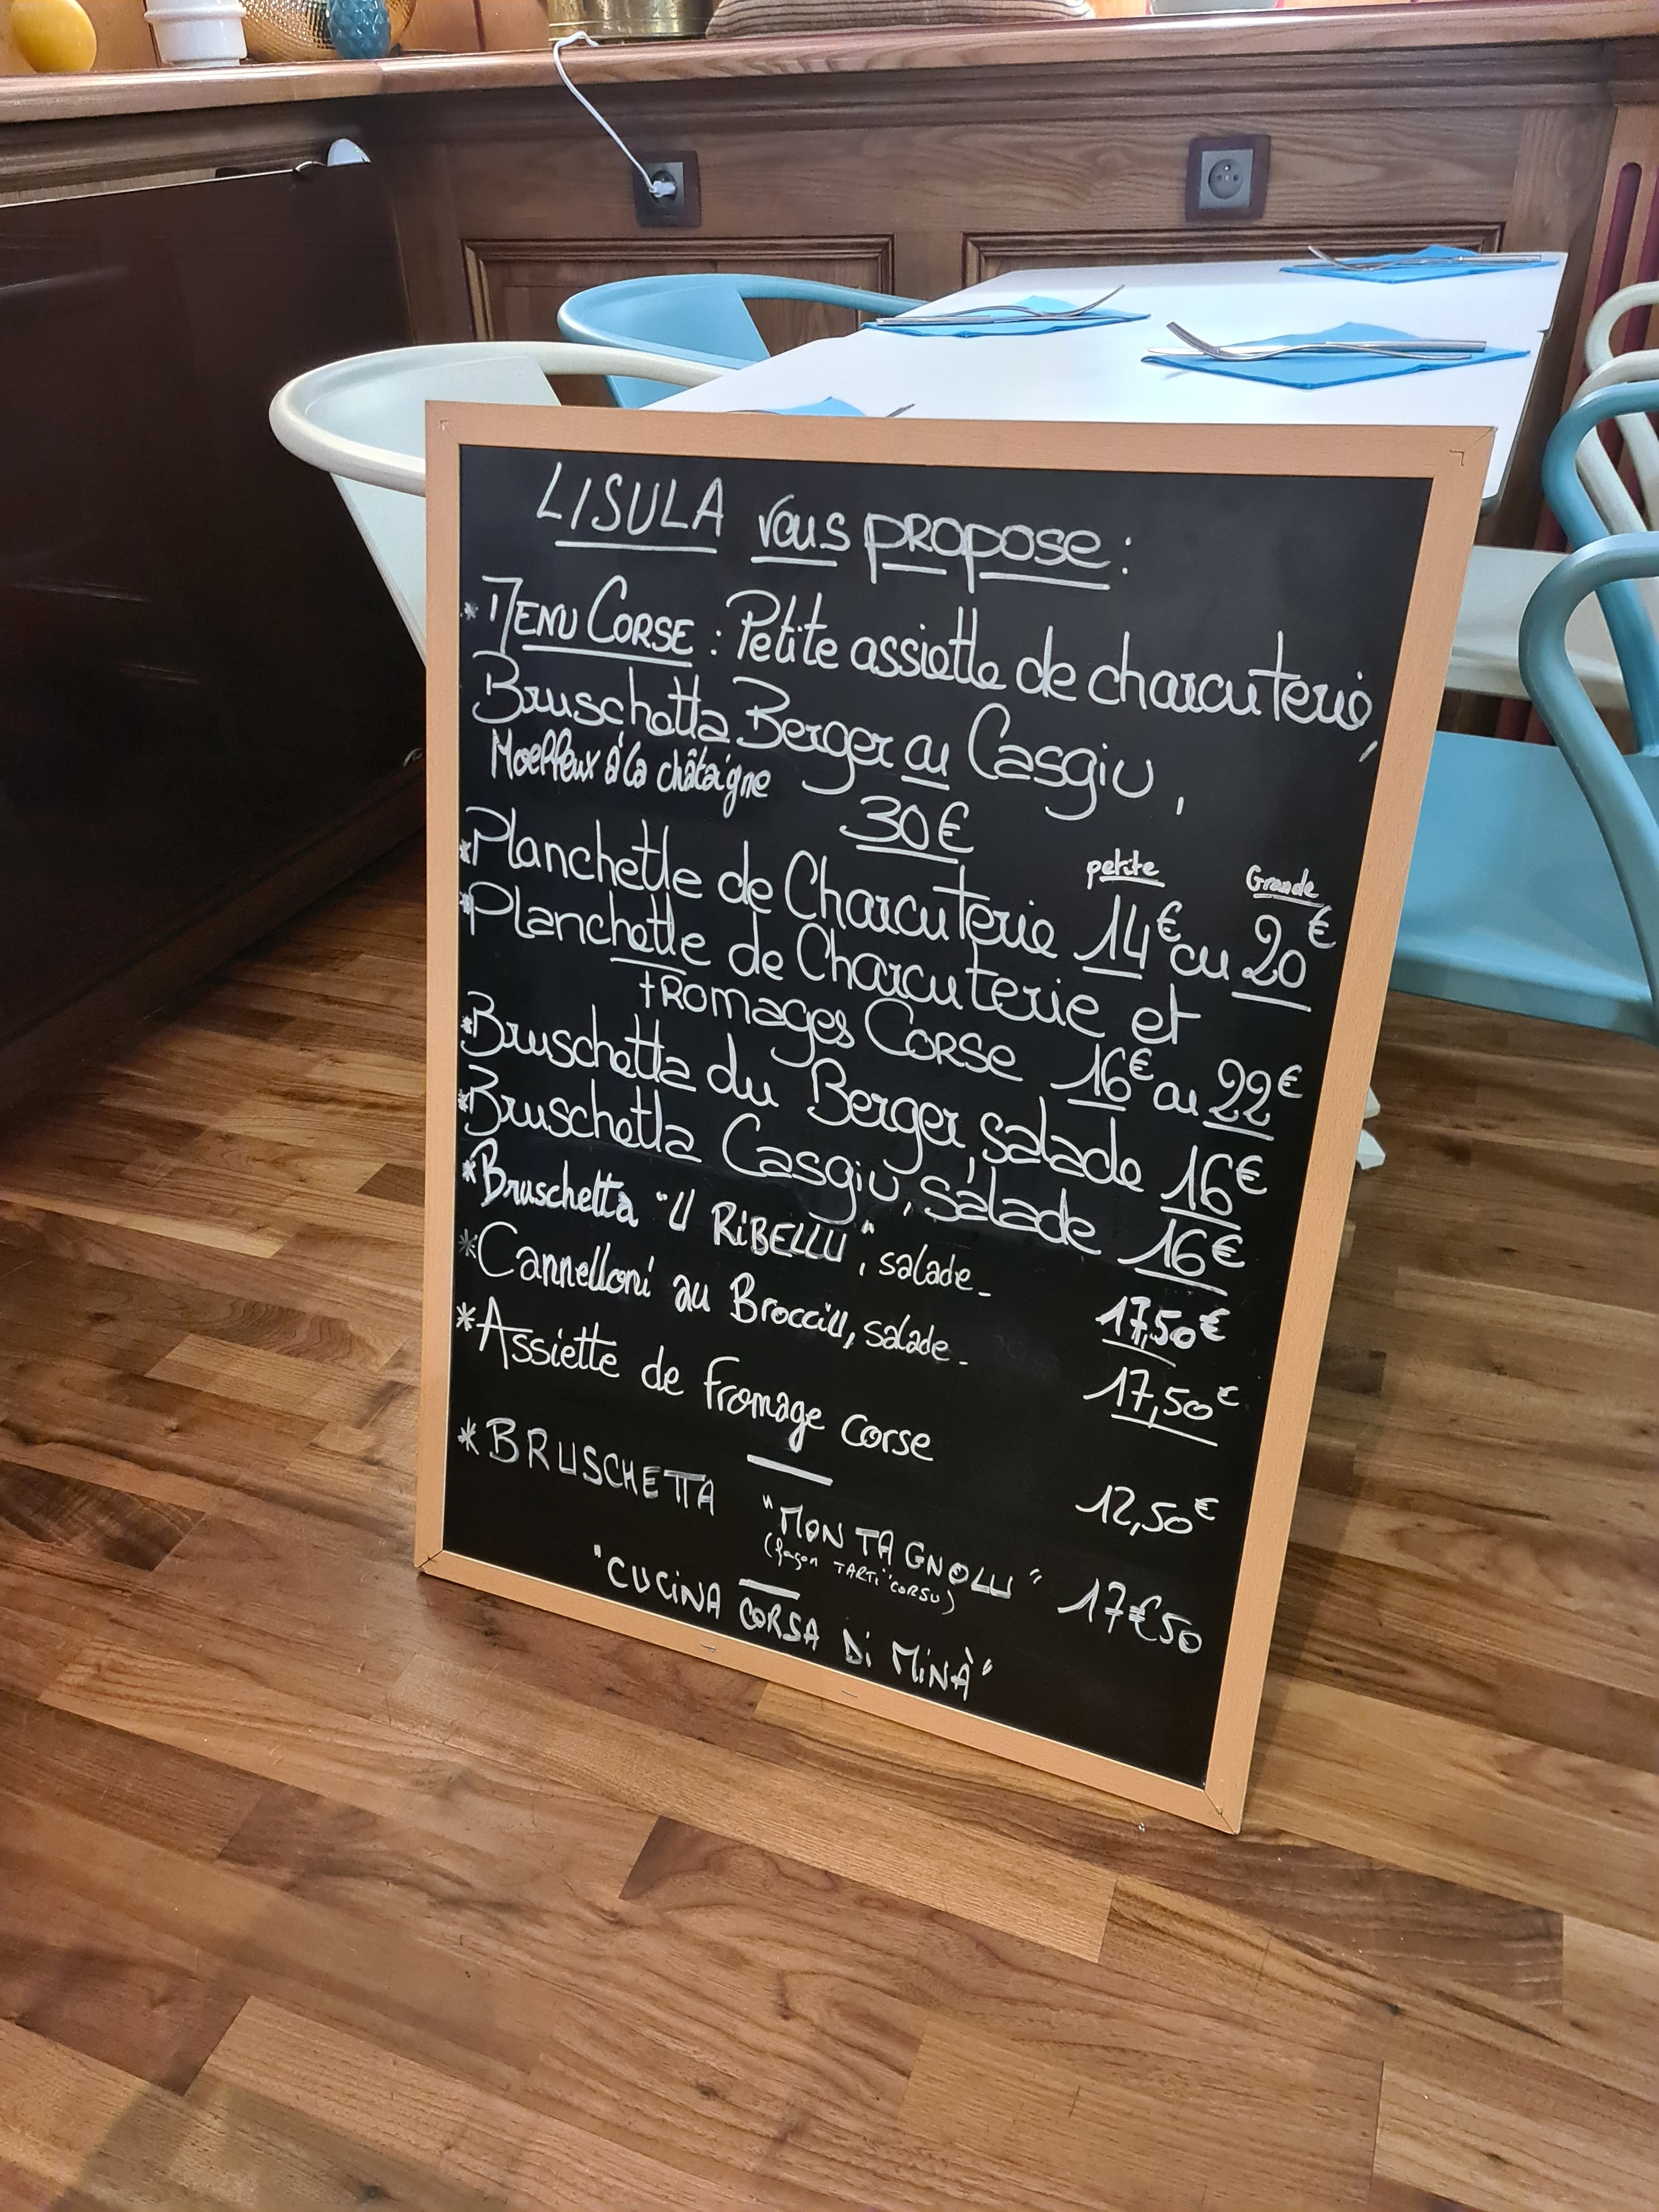 LISULA vous propose :
* MENU CORSE : Petite assiette de charcuterie,
Bruschetta Berger ou Casgiu,
Moelleux à la châtaigne
30€
petite Grande
* Planchette de Charcuterie 14€ ou 20€
* Planchette de Charcuterie et
fromages CORSE 16€ ou 22€
* Bruschetta du Berger, salade 16€
* Bruschetta Casgiu, salade 16€
* Bruschetta "U RiBELLU", salade - 17,50€
* Cannelloni au Brocciu, salade - 17,50€
* Assiette de fromage corse 12,50€
* BRUSCHETTA "MONTAGNOLU" 17€50
(façon TARTI'CORSU)
"CUCiNA CORSA Di MiNÀ"